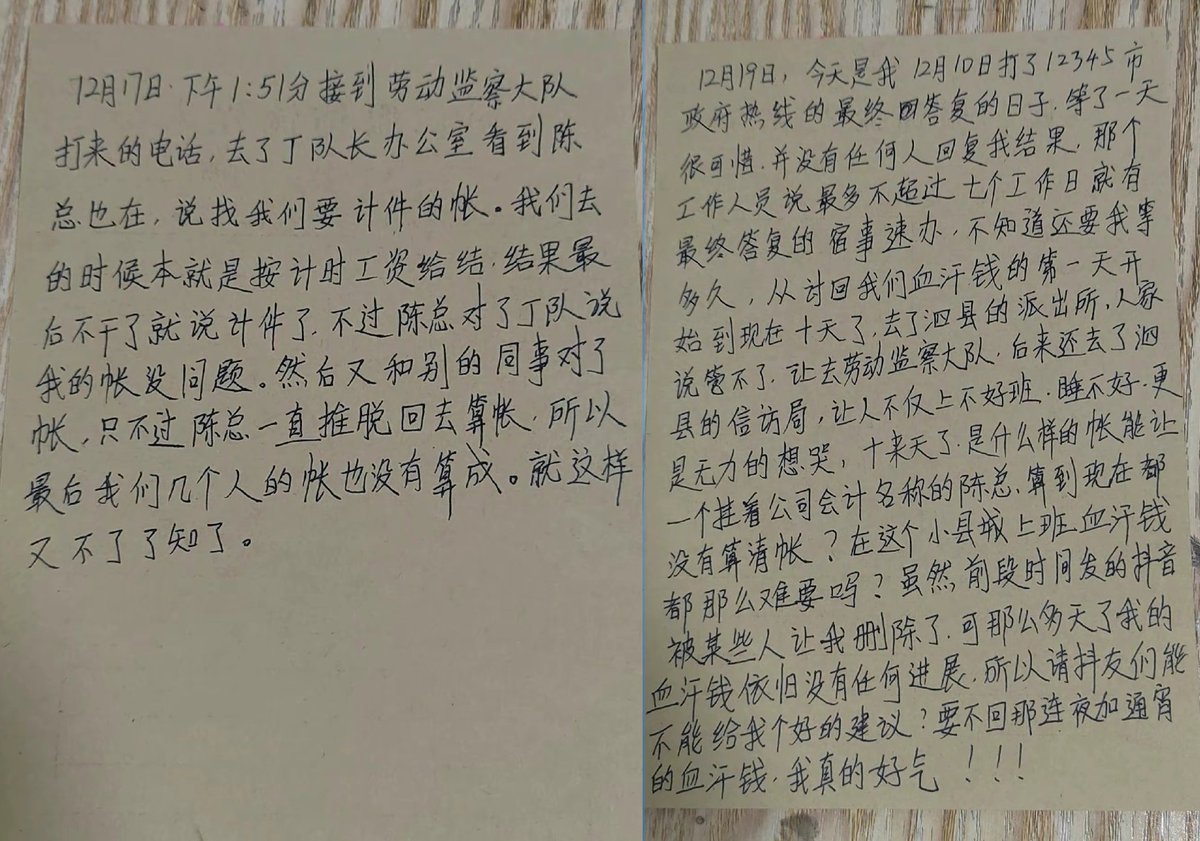 12月17日.下午1:51分接到劳动监察大队
打来的电话,去了丁队长办公室看到陈
总也在,说找我们要计件的帐。我们去
的时候本就是按计时工资给结.结果最
后不干了就说计件了.不过陈总对了丁队说
我的帐没问题。然后又和别的同事对了
帐,只不过陈总一直推脱回去算帐.所以
最后我们几个人的帐也没有算成。就这样
又不了了知了。
12月19日,今天是我12月10日打了12345市
政府热线的最终回答复的日子.等了一天
很可惜.并没有任何人回复我结果,那个
工作人员说最多不超过七个工作日就有
最终答复的宿事速办,不知道还要我等
多久,从讨回我们血汗钱的第一天开
始到现在十天了.去了泗县的派出所,人家
说管不了.让去劳动监察大队,后来还去了泗
县的信访局,让人不仅上不好班.睡不好.更
是无力的想哭,十来天了.是什么样的帐能让
一个挂着公司会计名称的陈总.算到现在都
没有算清帐?在这个小县城上班血汗钱
都那么难要吗?虽然前段时间发的抖音
被某些人让我删除了.可那么多天了我的
血汗钱依归没有任何进展.所以请抖友们能
不能给我个好的建议?要不回那连夜加通宵
的血汗钱.我真的好气!!!